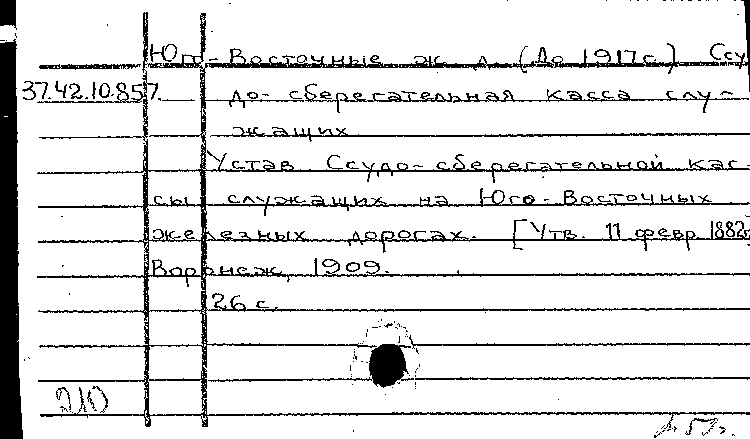 Юго-Восточные ж. д. (До 1917 г.) Ссу
37.42.10.857. до-сберегательная касса слу-
жащих
Устав Ссудо-сберегательной кас-
сы служащих на Юго-Восточных
железных дорогах. [Утв. 11 февр. 1882г
Воронеж, 1909.
26 с.